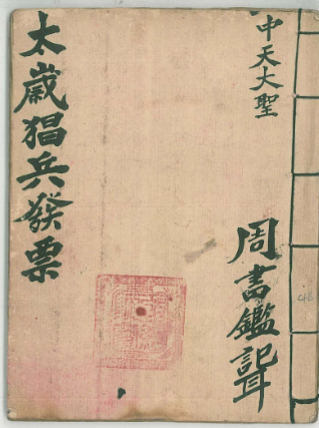 中天大聖
周書鑑記
太歲猖兵發票